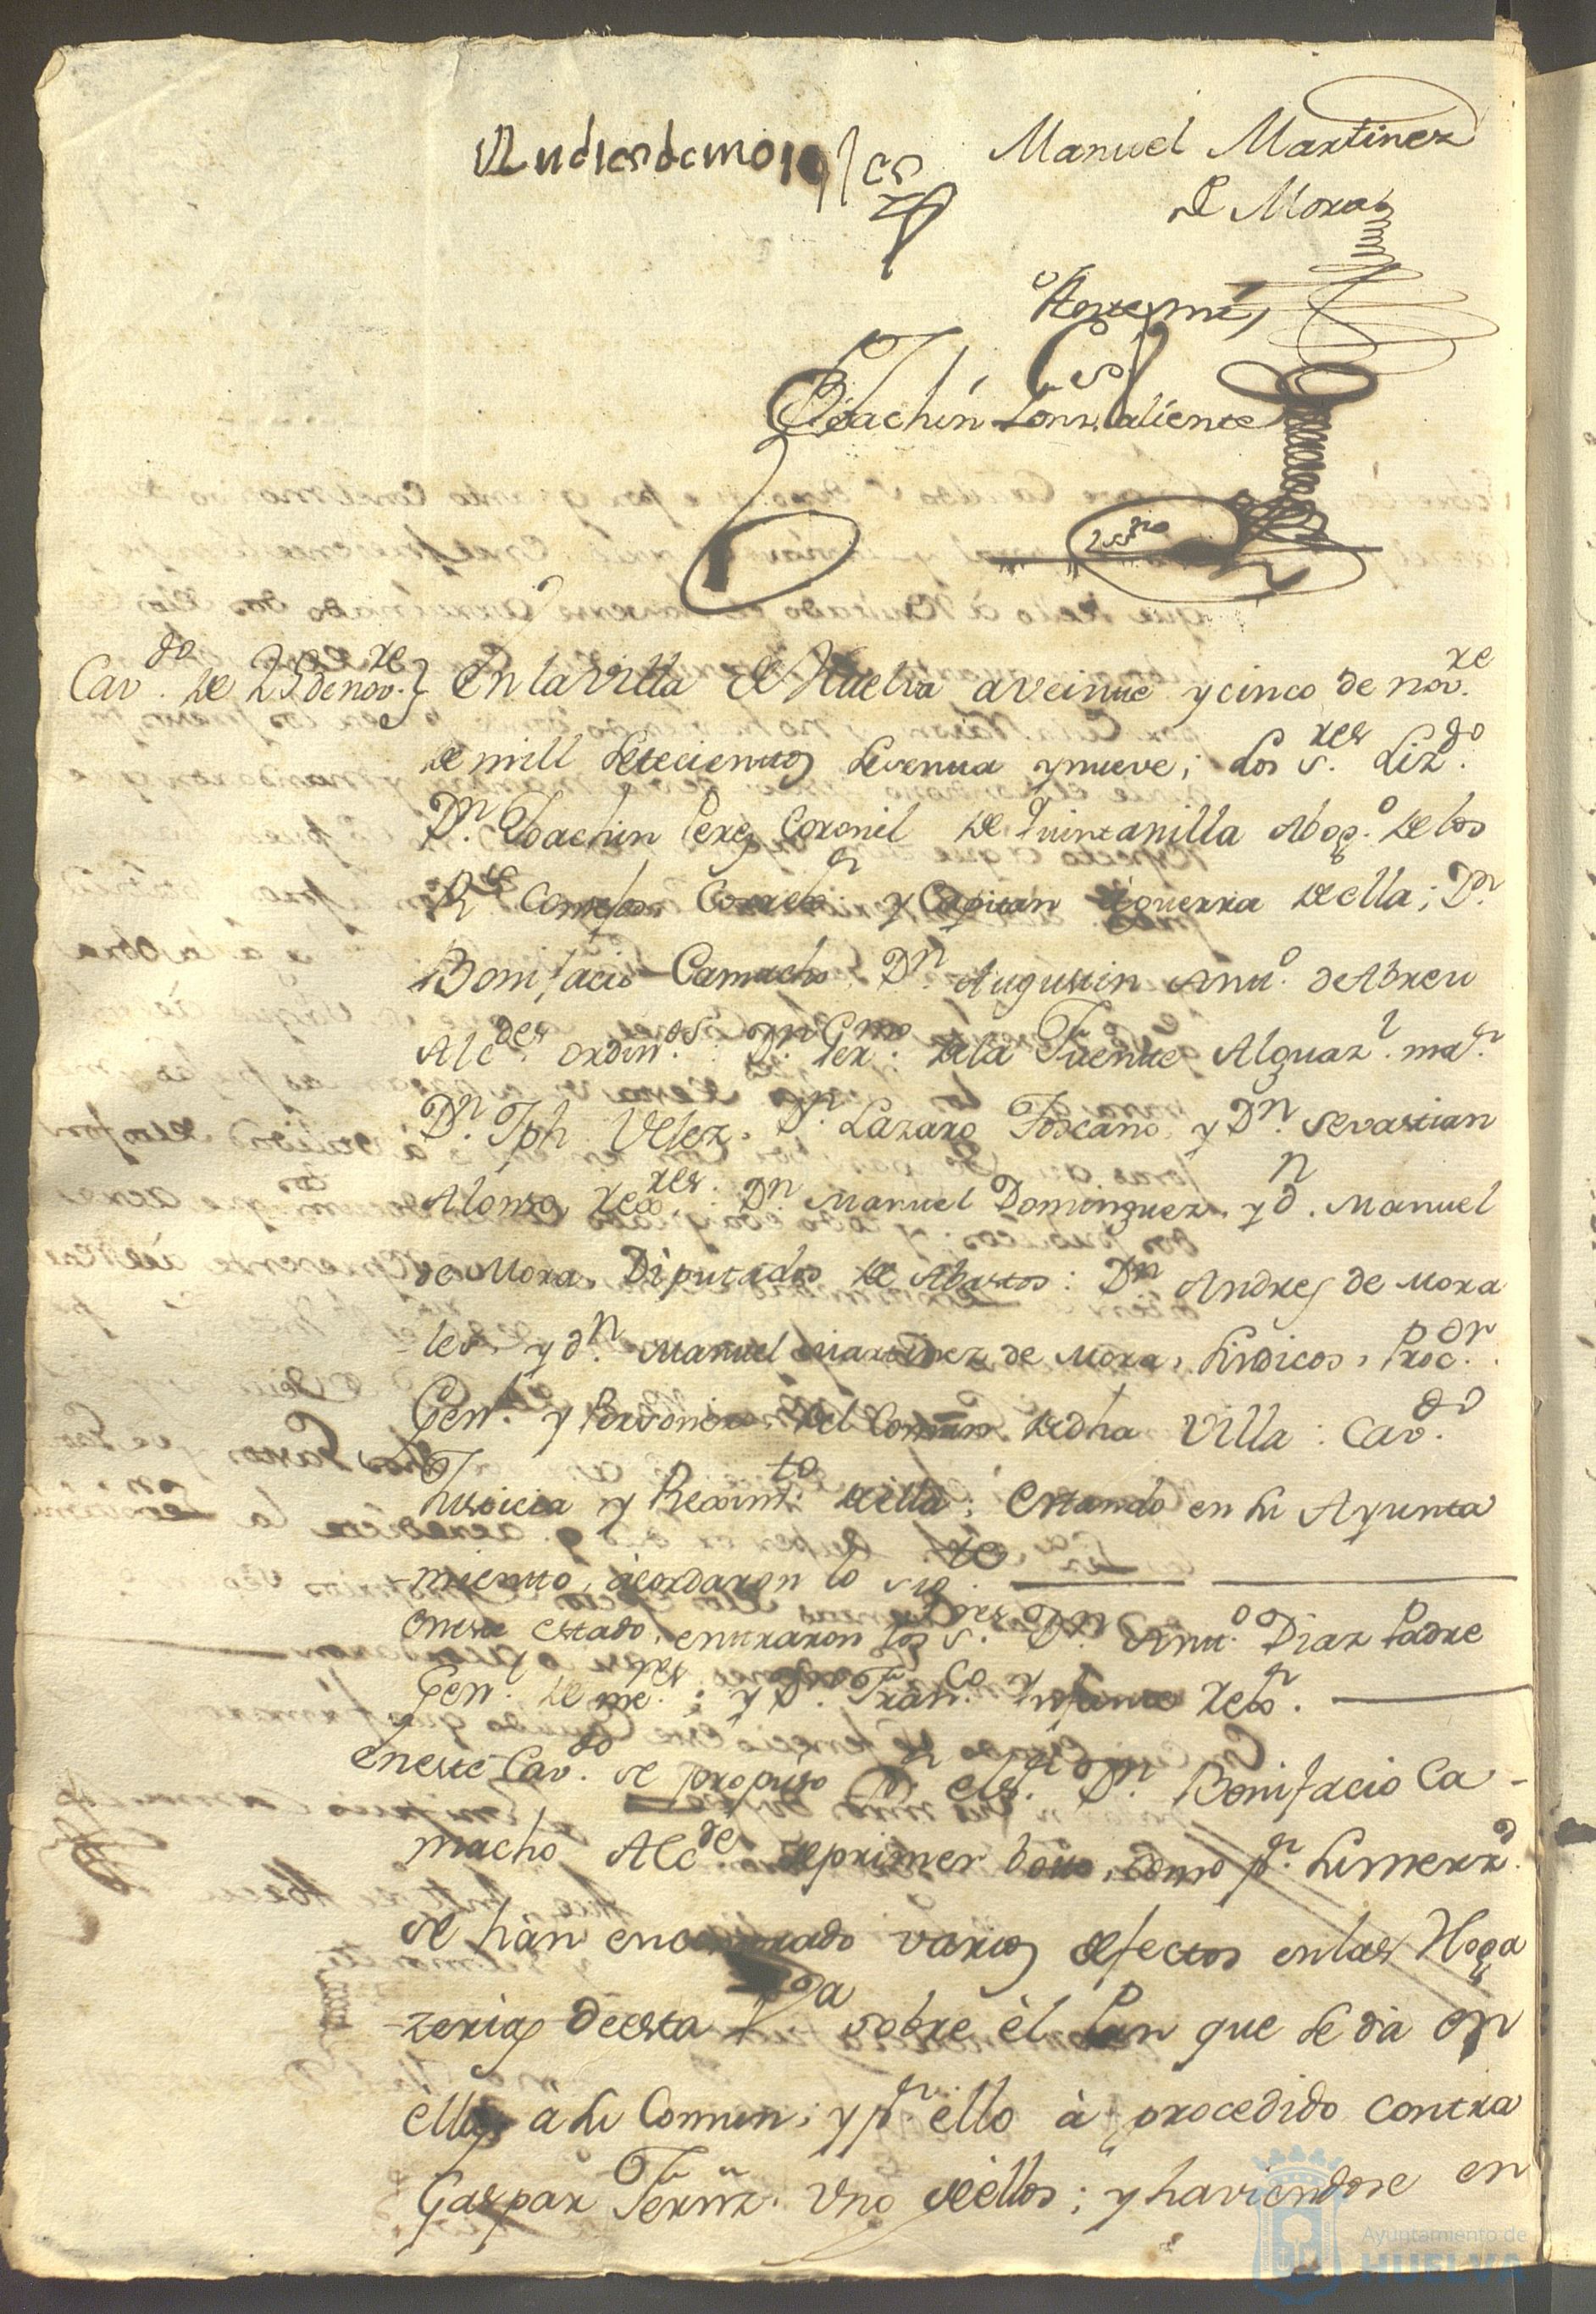 Andres de morales
Manuel Martinez
de Mora
Antemi,
Joachin Gonz. Valiente
Cav.do de 25 de nov.re } En la Villa de Huelva a veintte y cinco de nov.re
de mill settecienttos sesentta y nueve; Los S.res Liz.do
D.n Joachin Perez Coronel de Quintanilla Abog.o de los
R.s Consejos Correx.or y Capittan à guerra de ella; D.n
Bonifacio Camacho D.n Augustin Antt.o de Abreu
Alc.des ordin.os: D.n Ger.mo de la Fuentte Alguaz.l ma.r
D.n Jph Velez, D.n Lazaro Toscano, y D.n Sevastian
Alonso, Rex.res: D.n Manuel Dominguez, y d.n Manuel
de Mora, Diputados de Abastos: D.n Andres de Mora
les, y d.n Manuel Martinez de Mora, Sindicos, Proc.or
Gen.l y Personero, del Comun de dha Villa: Cav.do
Justicia y Reximt.to de ella; Estando en su Ayunta
mientto, àcordaron lo sig.te
en este estado, enttraron los S.res D.n Antt.o Diaz Padre
Gen.l de me.res; y D.n Fran.co Infante Rex.r
en este Cav.do se propuso p.r el S.r D.n Bonifacio Ca-
macho Alc.de de primer votto, como p.r su merx.d
se hàn encontrado varios defectos en las Hoga
zerias de esta V.a sobre èl Pan que se dà en
ellas à su Comun; y p.r ello à procedido contra
Gaspar Fernz. Uno de èllos; y haviendose en
Ayuntamiento de
HUELVA